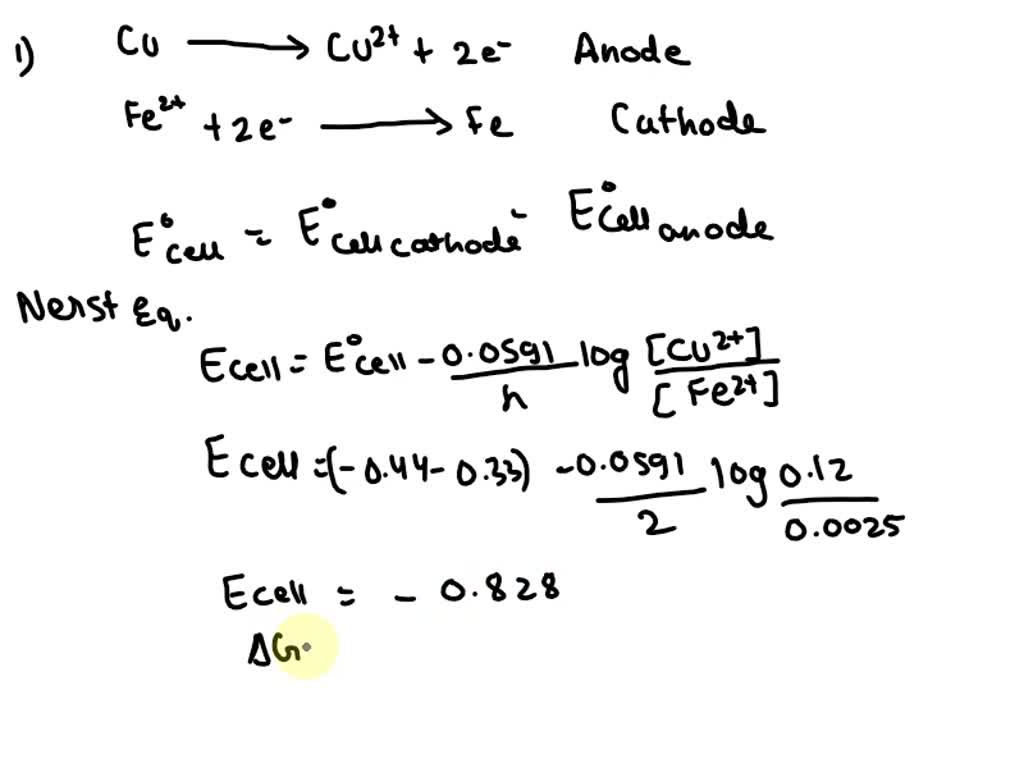 1) Cu ⟶ Cu²⁺ + 2e⁻ Anode
Fe²⁺ + 2e⁻ ⟶ Fe Cathode
E°cell = E°cell cathode - E°cell anode
Nerst Eq.
Ecell = E°cell - 0.0591/n log [Cu²⁺]/[Fe²⁺]
Ecell = (-0.44 - 0.33) - 0.0591/2 log 0.12/0.0025
Ecell = - 0.828
ΔG